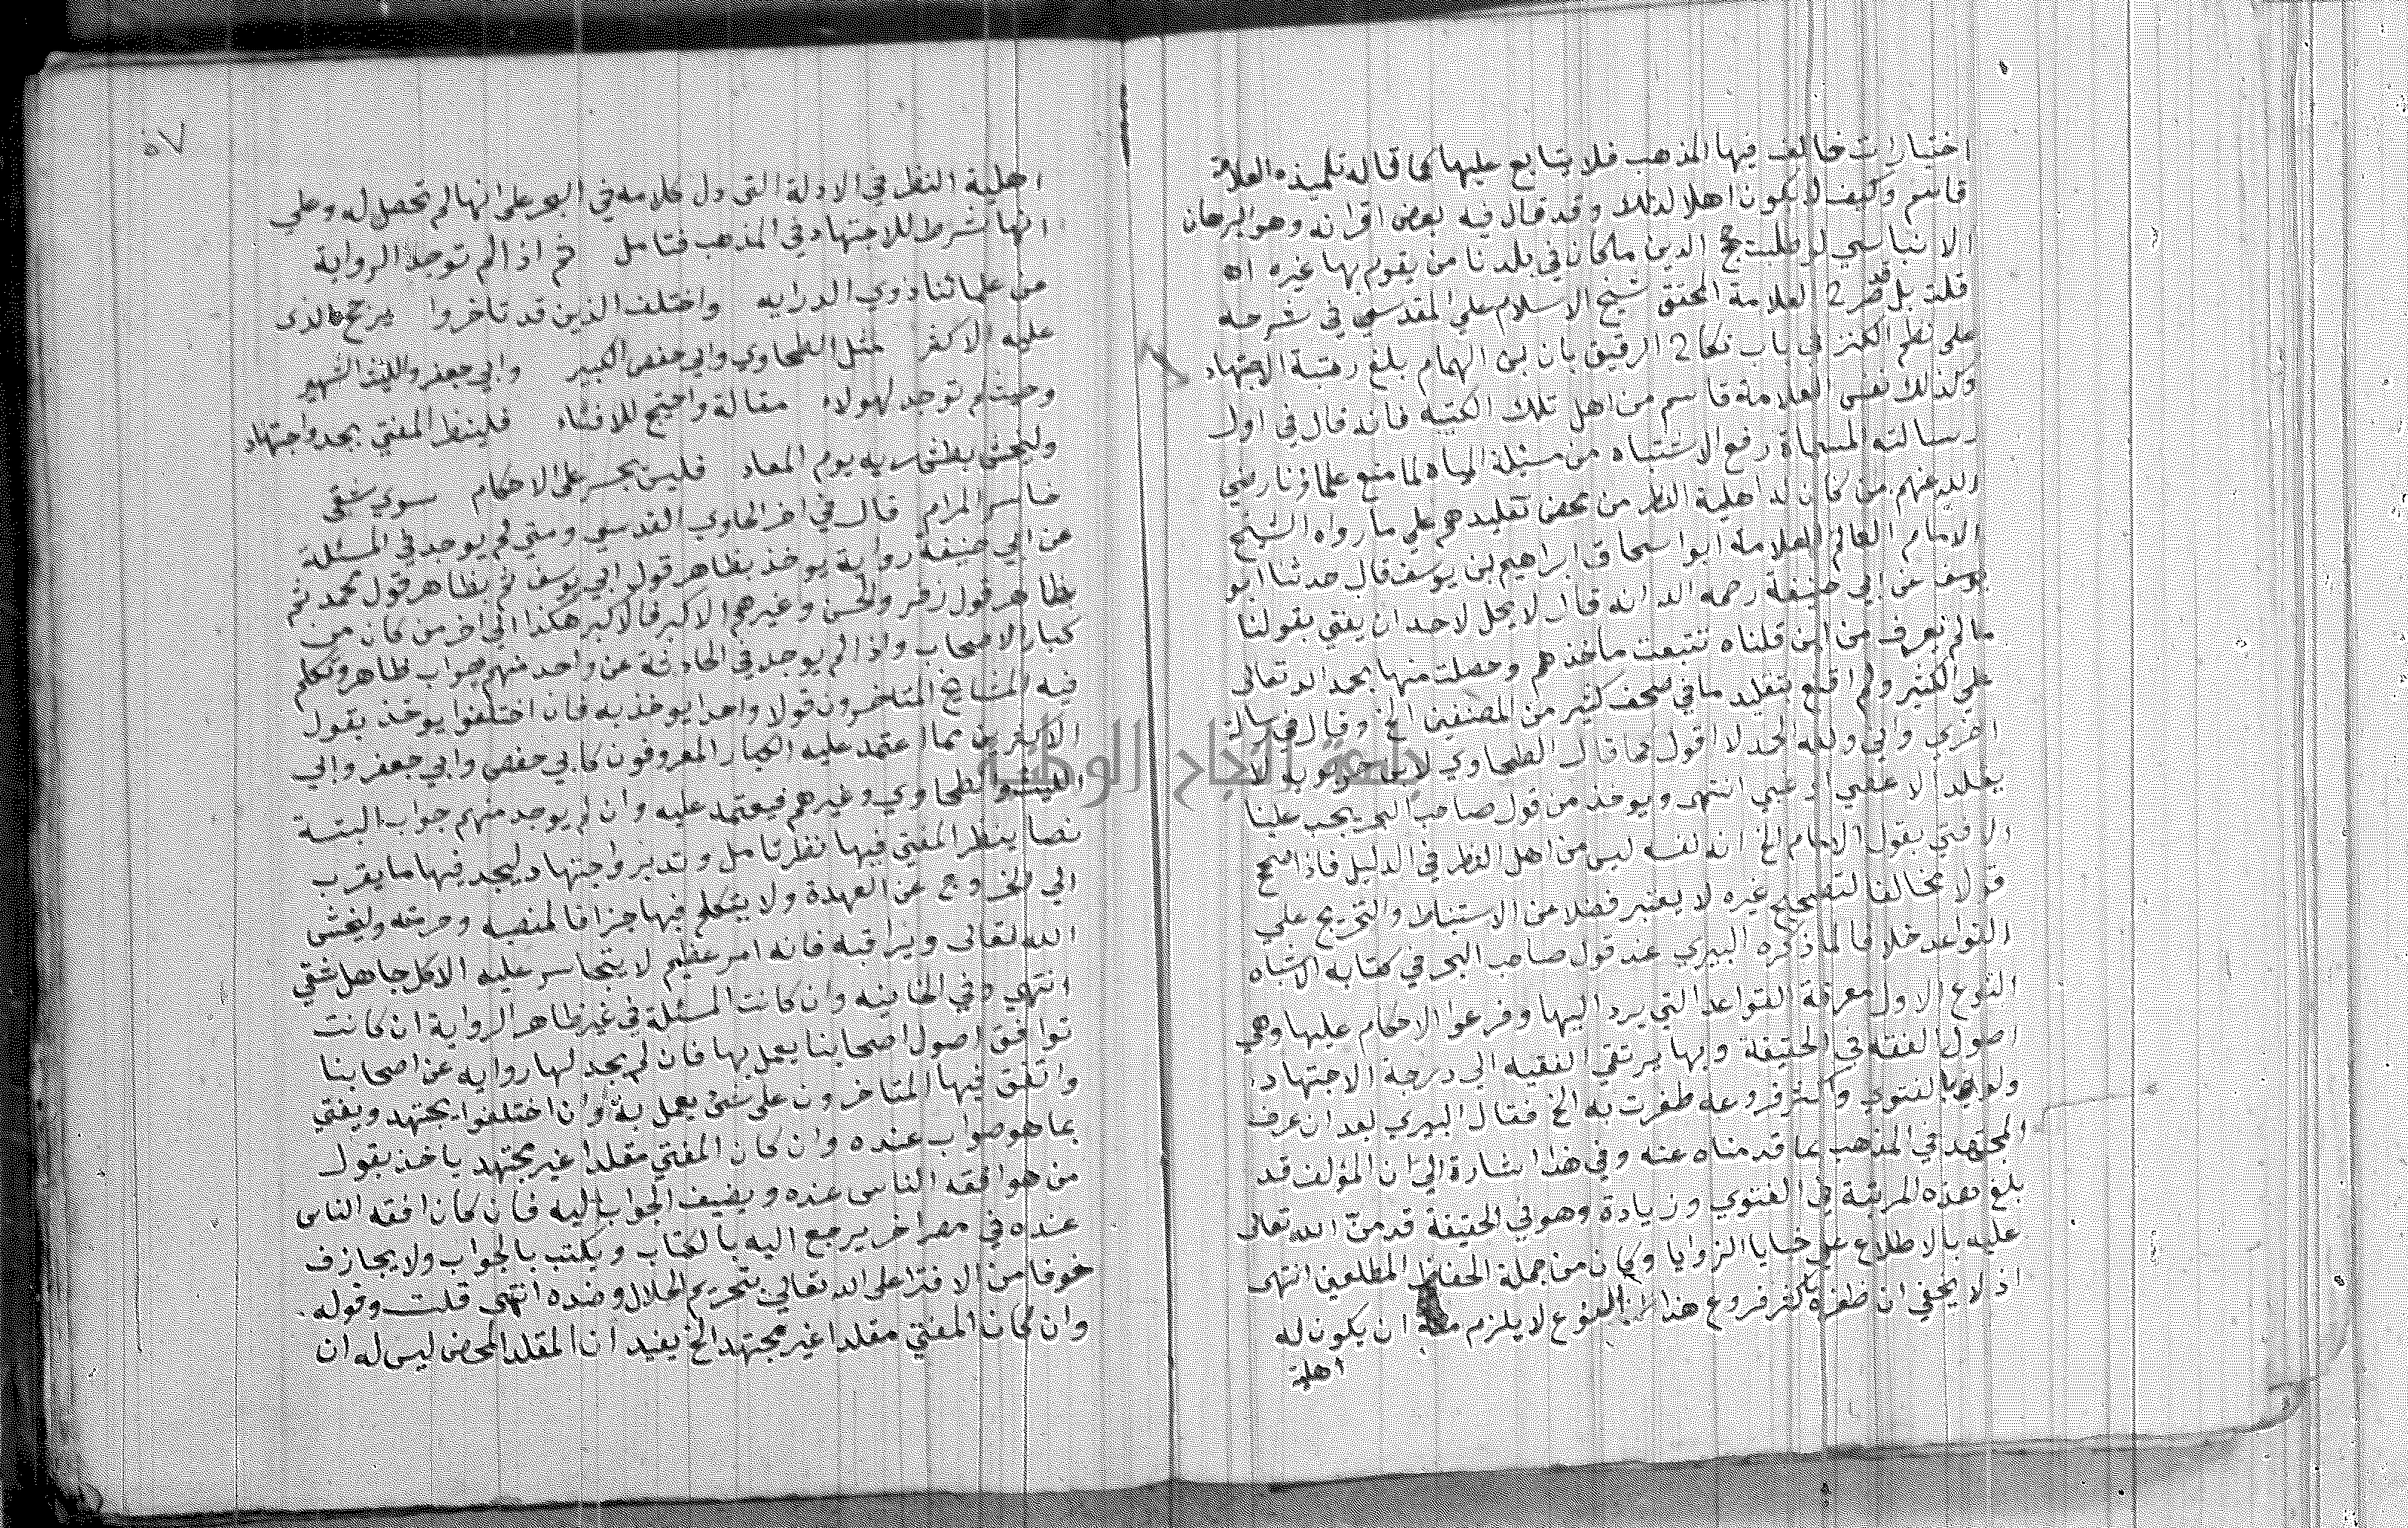 اختيارات خالف فيها المذهب فلا يتابع عليها كما قاله تلميذه العلامة
قاسم وكيف لا يكون اهلا لذلك وقد قال فيه بعض اقرانه وهو البرهان
الانباسي لو طلبت حجج الدين ما كان في بلدنا من يقوم بها غيره اه
قلت بل قد صرح العلامة المحقق شيخ الاسلام علي المقدسي في شرحه
على نظم الكنز في باب نكاح الرقيق بان بن الهمام بلغ رتبة الاجتهاد
وكذلك نفس العلامة قاسم من اهل تلك الكتيبه فانه قال في اول
رسالته المسماة رفع الاشتباه من مسئلة المياه لما منع علماؤنا رضي
الله عنهم من كان له اهلية النظر من محض تقليدهم على ما رواه الشيخ
الامام العالم العلامة ابو اسحاق ابراهيم بن يوسف قال حدثنا ابو
يوسف عن ابي حنيفة رحمه الله انه قال لا يحل لاحد ان يفتي بقولنا
ما لم يعرف من اين قلناه تتبعت مآخذهم وحصلت منها بحمد الله تعالى
على الكثير ولم اقنع بتقليد ما في صحف كثير من المصنفين الخ وقال في رسالة
اخرى واني ولله الحمد لا اقول كما قال الطحاوي لابن حربويه لا
يقلد الا عصبي او غبي انتهى ويوخذ من قول صاحب البحر يجب علينا
الافتي بقول الامام الخ انه نفسه ليس من اهل النظر في الدليل فاذا صحح
قولا مخالفا لتصحيح غيره لا يعتبر فضلا عن الاستنباط والتخريج على
القواعد خلافا لما ذكره البيري عند قول صاحب البحر في كتابه الاشباه
النوع الاول معرفة القواعد التي يرد اليها وفرعوا الاحكام عليها وهي
اصول الفقه في الحقيقة وبها يرتقي الفقيه الى درجة الاجتهاد
ولو في الفتوي واكثر فروعه ظفرت به الخ فقال البيري بعد ان عرف
المجتهد في المذهب بما قدمناه عنه وفي هذا اشارة الى ان المؤلف قد
بلغ هذه المرتبة في الفتوي وزيادة وهو في الحقيقة قد منّ الله تعالى
عليه بالاطلاع على خبايا الزوايا وكان من جملة الحفاظ المطلعين انتهى
اذ لا يخفي ان ظفره باكثر فروع هذا النوع لا يلزم منه ان يكون له
اهلية
٥٧
اهلية النظر في الادلة التي دل كلامه في البحر على انها لم تحصل له وعلي
انها شرط للاجتهاد في المذهب فتامل ثم اذا لم توجد الرواية
من علمائنا ذوي الدرايه واختلف الذين قد تاخروا يرجح الذى
عليه الاكثر مثل الطحاوي وابي حفص الكبير وابي جعفر والليث الشهير
وحيث لم توجد لهولاء مقالة واحتيج للافتاء فلينظر المفتي بجد واجتهاد
وليخش بطش ربه يوم المعاد فليس يجسر على الاحكام سوي شقي
خاسر المرام قال في اخر الحاوي القدسي ومتي لم يوجد في المسئلة
عن ابي حنيفة رواية يوخذ بظاهر قول ابي يوسف ثم بظاهر قول محمد ثم
بظاهر قول زفر والحسن وغيرهم الاكبر فالاكبر هكذا الي اخر من كان من
كبار الاصحاب واذا لم يوجد في الحادثة عن واحد منهم جواب ظاهر وتكلم
فيه المشايخ المتاخرون قولا واحدا يوخذ به فان اختلفوا يوخذ بقول
الاكثرين مما اعتمد عليه الكبار المعروفون كابي حفص وابي جعفر وابي
الليث والطحاوي وغيرهم فيعتمد عليه وان لم يوجد منهم جواب البتة
نصا ينظر المفتي فيها نظر تامل وتدبر واجتهاد ليجد فيها ما يقرب
الي الخروج عن العهدة ولا يتكلم فيها جزافا لمنصبه وحرمته وليخش
الله تعالى ويراقبه فانه امر عظيم لا يتجاسر عليه الا كل جاهل شقي
انتهي وفي الخانيه وان كانت المسئلة في غير ظاهر الرواية ان كانت
توافق اصول اصحابنا يعمل بها فان لم يجد لها روايه عن اصحابنا
واتفق فيها المتاخرون على شئ يعمل به وان اختلفوا يجتهد ويفتي
بما هو صواب عنده وان كان المفتي مقلدا غير مجتهد ياخذ بقول
من هو افقه الناس عنده ويضيف الجواب اليه فان كان افقه الناس
عنده في مصر اخر يرجع اليه بالكتاب ويكتب بالجواب ولا يجازف
خوفا من الافترا على الله تعالي بتحريم الحلال وضده انتهى قلت وقوله
وان كان المفتي مقلدا غير مجتهد الخ يفيد ان المقلد المحض ليس له ان
جامعة النجاح الوطنية